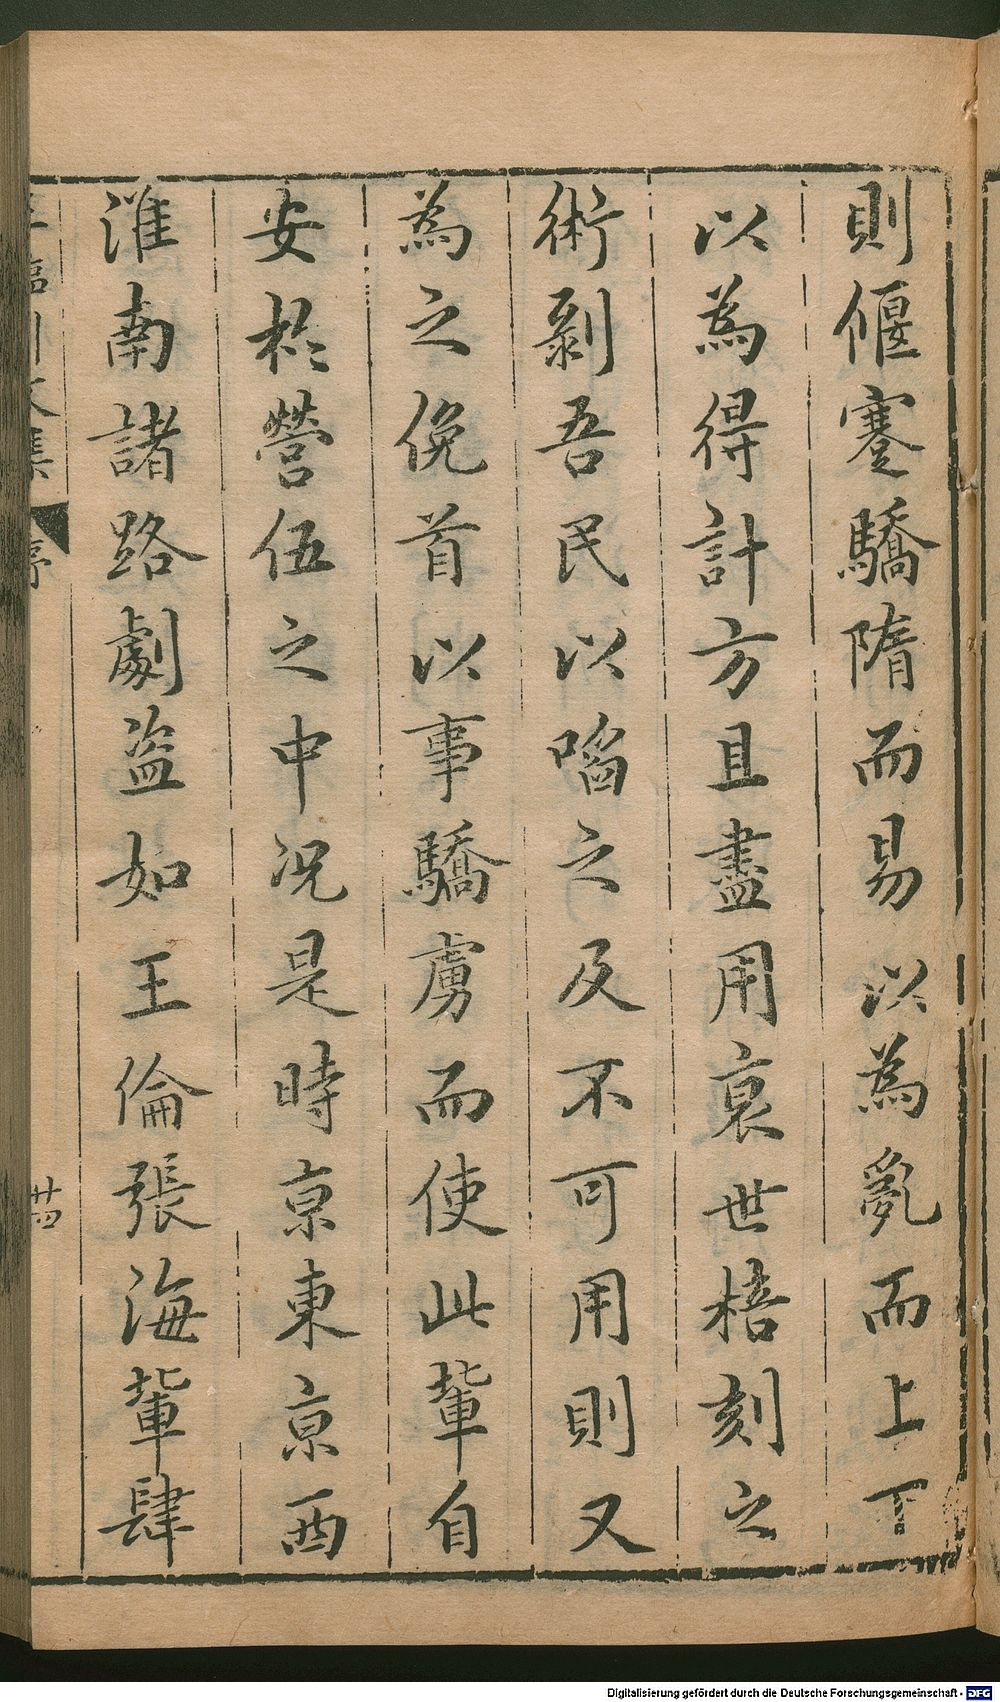 則偃蹇驕隋而易以為亂而上下
以為得計方且盡用衰世掊刻之
術剝吾民以啗之及不可用則又
為之俛首以事驕虜而使此輩自
安於營伍之中况是時京東京西
淮南諸路劇盗如王倫張海輩肆
臨川文集 序
廿四
Digitalisierung gefördert durch die Deutsche Forschungsgemeinschaft - DFG